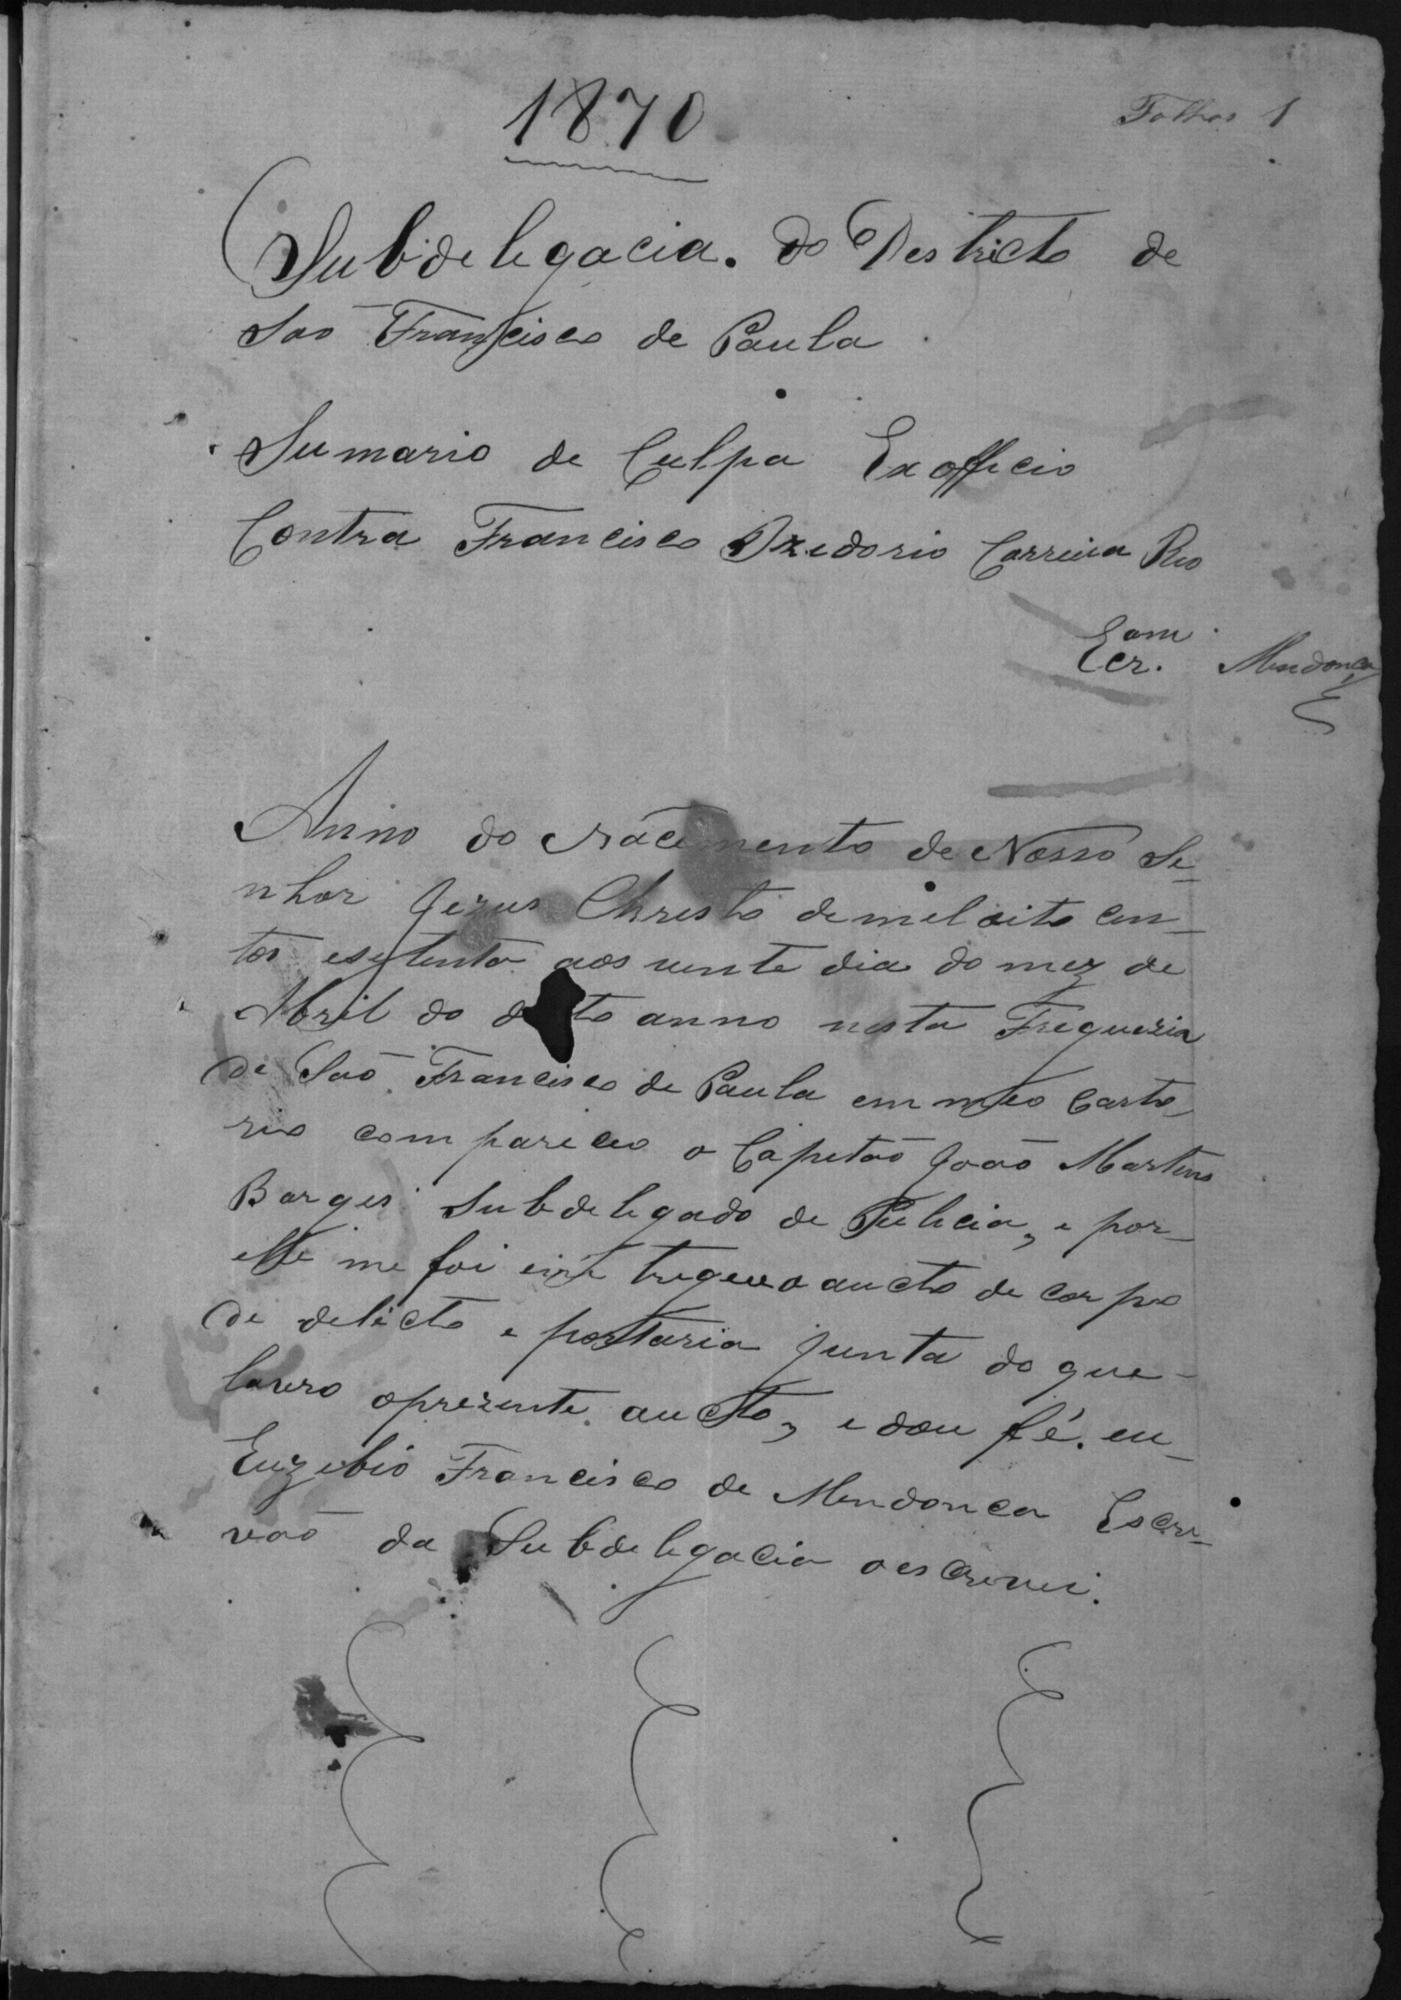 1870
Folhas 1
Subdelegacia. do Destricto de
São Francisco de Paula
Sumario de Culpa Exofficio
Contra Francisco Izedorio Correira Reo
Eam
Ecr. Mendonca
Anno do Nacemento de Nosso Se-
nhor Jezus Christo demil oito cen-
tos esetenta aos vente dia do mez de
Abril do dito anno nesta Freguezia
de São Francisco de Paula em meo Carto
rio compareceo o Capetão João Martins
Borges Subdelegado de Pulicia, e por-
elle me foi entregue o aucto de corpo
de delicto e portaria junta do que-
lavro oprezente aucto, e dou fé. eu-
Euzebio Francisco de Mendonca Escri-
vão da Subdelegacia oescrevi.